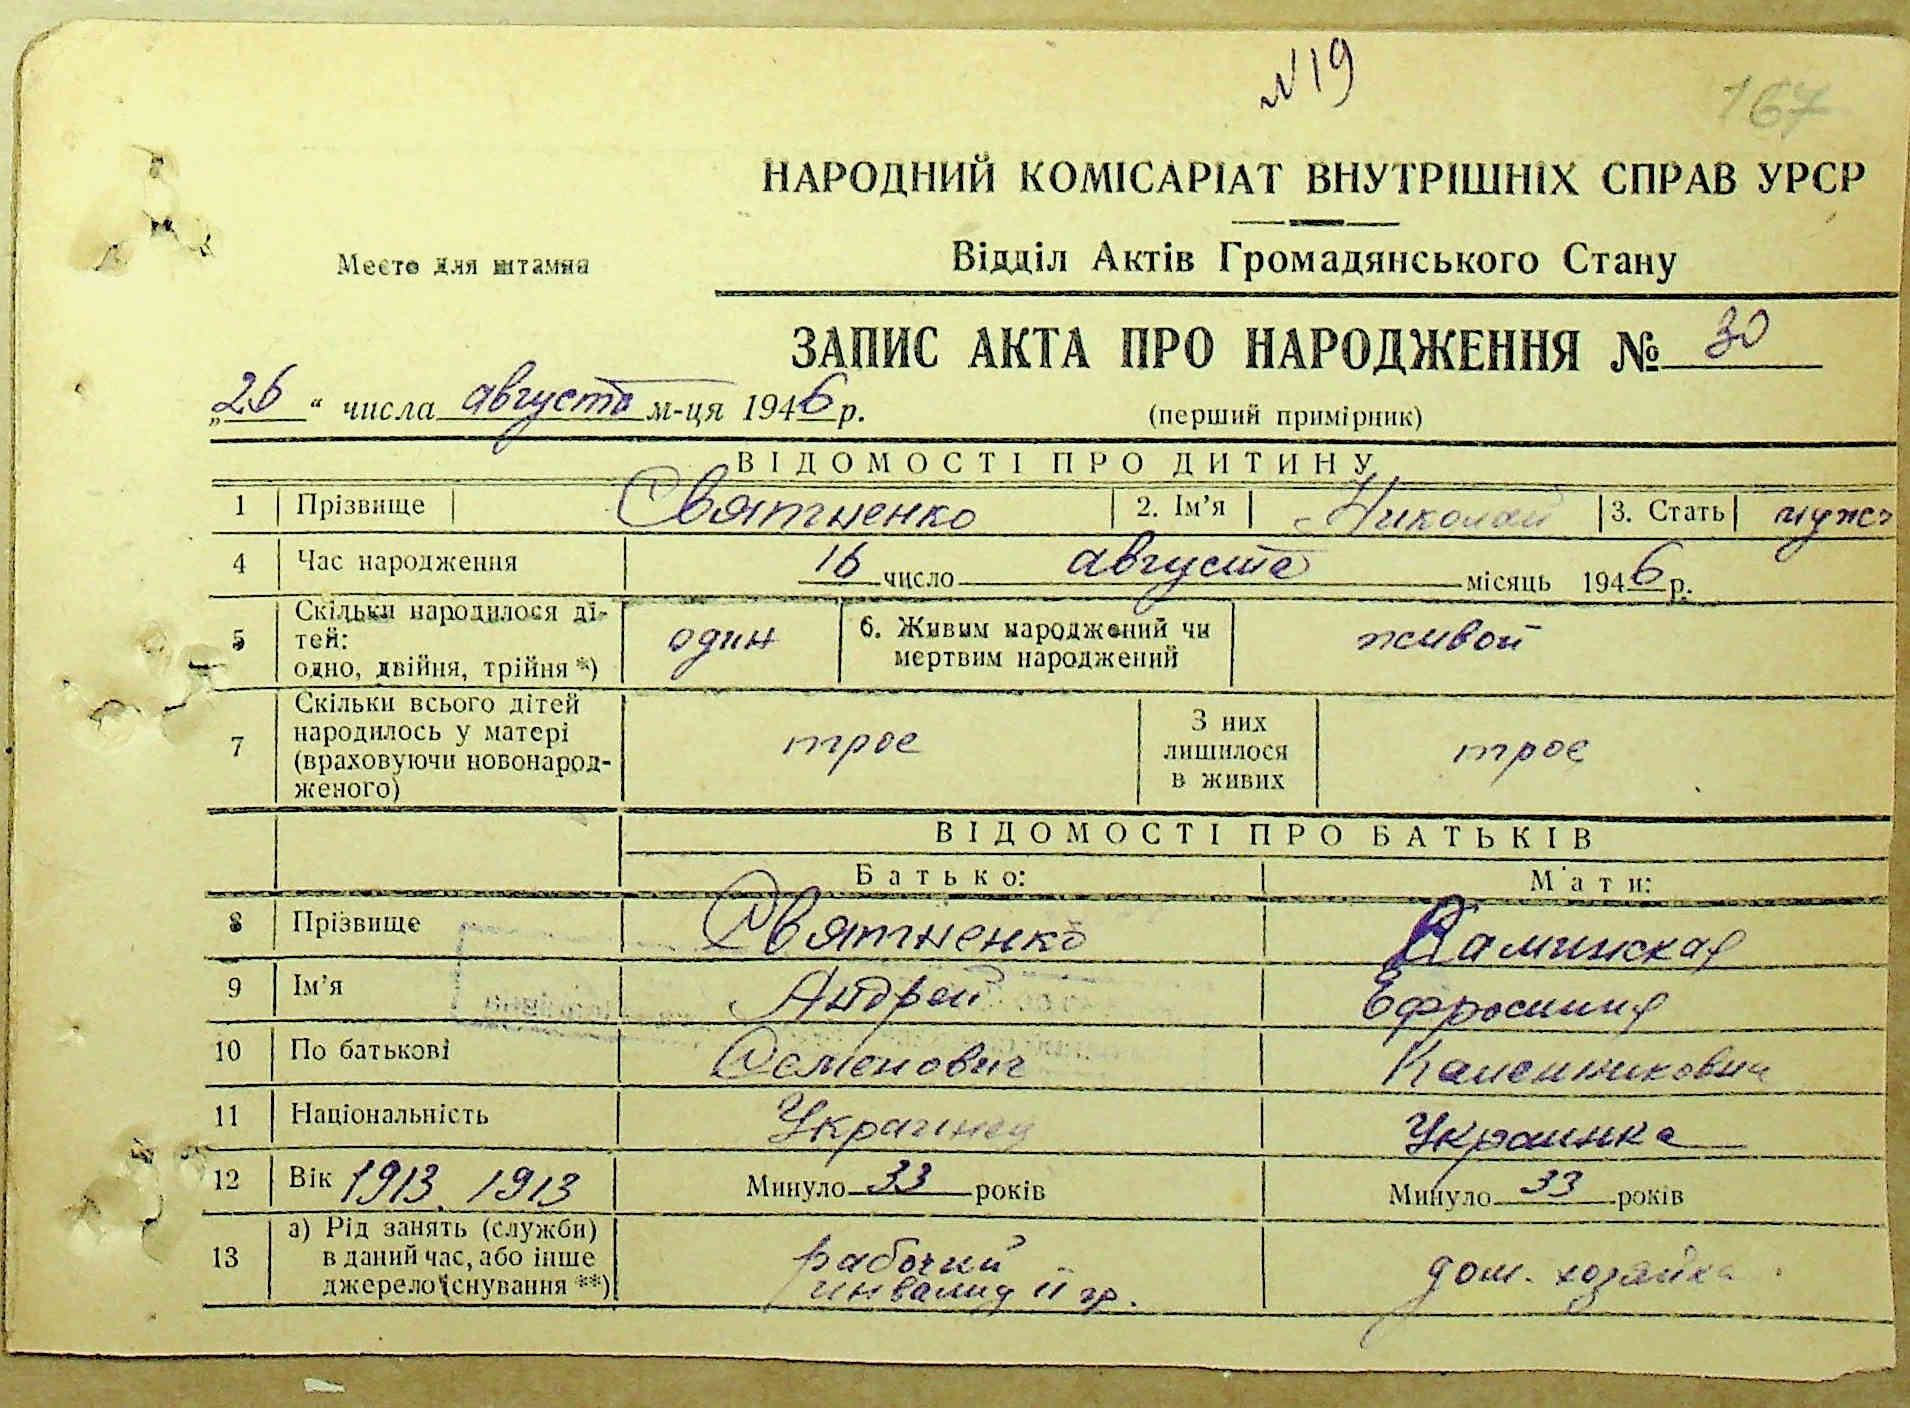 № 19
167
НАРОДНИЙ КОМІСАРІАТ ВНУТРІШНІХ СПРАВ УРСР
Место для штампа
Відділ Актів Громадянського Стану
ЗАПИС АКТА ПРО НАРОДЖЕННЯ № 30
„26“ числа августа м-ця 1946 р. (перший примірник)
ВІДОМОСТІ ПРО ДИТИНУ
1 Прізвище Святненко 2. Ім'я Николай 3. Стать мужс
4 Час народження 16 число августа місяць 1946 р.
5 Скільки народилося ді-
тей:
одно, двійня, трійня *) один 6. Живим народжений чи
мертвим народжений живой
7 Скільки всього дітей
народилось у матері
(враховуючи новонарод-
женого) трое З них
лишилося
в живих трое
ВІДОМОСТІ ПРО БАТЬКІВ
Батько: Мати:
8 Прізвище Святненко Каминская
9 Ім'я Андрей Ефросиния
10 По батькові Семенович
11 Національність Украинец Украинка
12 Вік 1913. 1913 Минуло 33 років Минуло 33 років
13 а) Рід занять (служби)
в даний час, або інше
джерело існування **) рабочий
инвалид II гр. дом. хозяйка